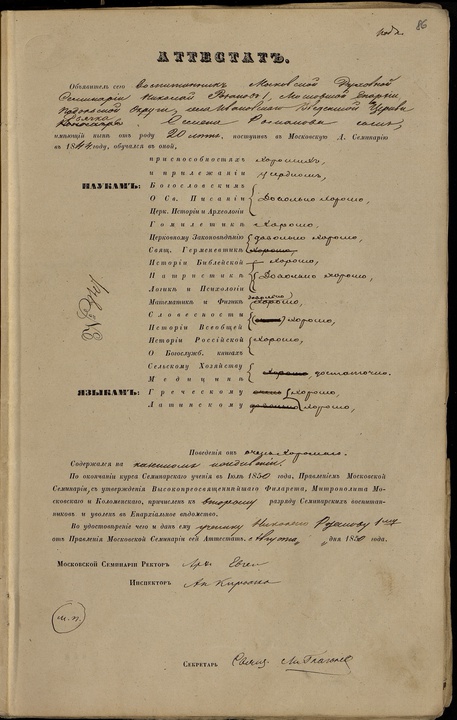 86
АТТЕСТАТЪ.
Объявитель сего Воспитанникъ Московской Духовной
Семинаріи Николай Московской Епархіи
Подольской округи, села Ивановскаго Церкви
Семена Романова сынъ,
имѣющій нынѣ отъ роду 20 лѣтъ, поступивъ въ Московскую Д. Семинарію
въ 1844 году, обучался въ оной,
при способностяхъ хорошихъ,
и прилежаніи усердномъ,
НАУКАМЪ: Богословскимъ
О Св. Писаніи довольно хорошо,
Церк. Исторіи и Археологіи
Гомилетикѣ хорошо,
Церковному Законовѣдѣнію довольно хорошо,
Свящ. Герменевтикѣ хорошо
Исторіи Библейской хорошо,
Патристикѣ довольно хорошо,
Логикѣ и Психологіи
Математикѣ и Физикѣ довольно хорошо,
Словесности хорошо,
Исторіи Всеобщей
Исторіи Россійской хорошо,
О Богослужб. книгахъ
Сельскому Хозяйству
Медицинѣ хорошо, достаточно.
ЯЗЫКАМЪ: Греческому хорошо,
Латинскому довольно хорошо,
Поведенія онъ очень хорошаго.
Содержался на казенномъ
По окончаніи курса Семинарскаго ученія въ Іюлѣ 1850 года, Правленіемъ Московской
Семинаріи, съ утвержденія Высокопреосвященнѣйшаго Филарета, Митрополита Мо-
сковскаго и Коломенскаго, причисленъ къ второму разряду Семинарскихъ воспитан-
никовъ и уволенъ въ Епархіальное вѣдомство.
Во удостовѣреніе чего и данъ ему ученику Николаю
отъ Правленія Московской Семинаріи сей Аттестатъ. Августа дня 1850 года.
Московской Семинаріи Ректоръ Арх.
Инспекторъ
м. п.
Секретарь